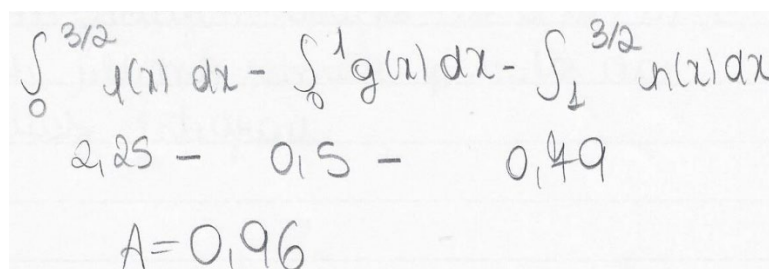 ∫₀^3/2 f(x) dx - ∫₀^1 g(x) dx - ∫₁^3/2 h(x) dx
2,25 - 0,5 - 0,79
A = 0,96